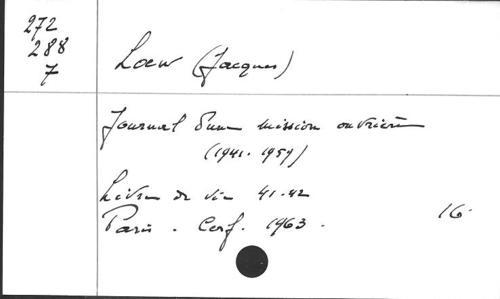 272
288
7
Loew (Jacques)
Journal d'une mission ouvrière
(1941-1959)
Livre de vie 41-42
Paris. Cerf. 1963.
16.